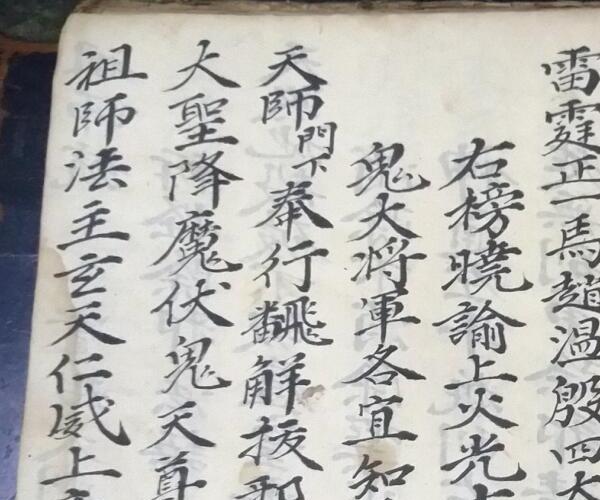 雷霆正一馬趙温殷四大
右榜曉諭上火光
鬼大将軍各宜知
天師門下奉行飜觧拔
大聖降魔伏鬼天尊
祖師法主玄天仁威上